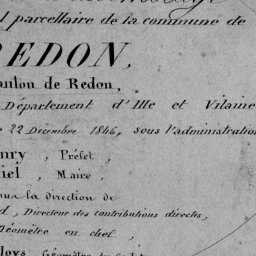 l parcellaire de la commune de
REDON,
anton de Redon,
Département d'Ille et Vilaine
e 22 Décembre 1846, sous l'administratio
nry, Préfet,
iel, Maire,
ous la direction de
d, Directeur des contributions directes,
Géomètre en chef,
Géomètre du